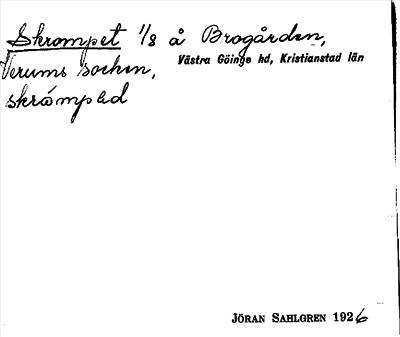 Skrompet 1/8 å Brogården,
Verums socken, Västra Göinge hd, Kristianstad län
skrómpəd
JÖRAN SAHLGREN 1926